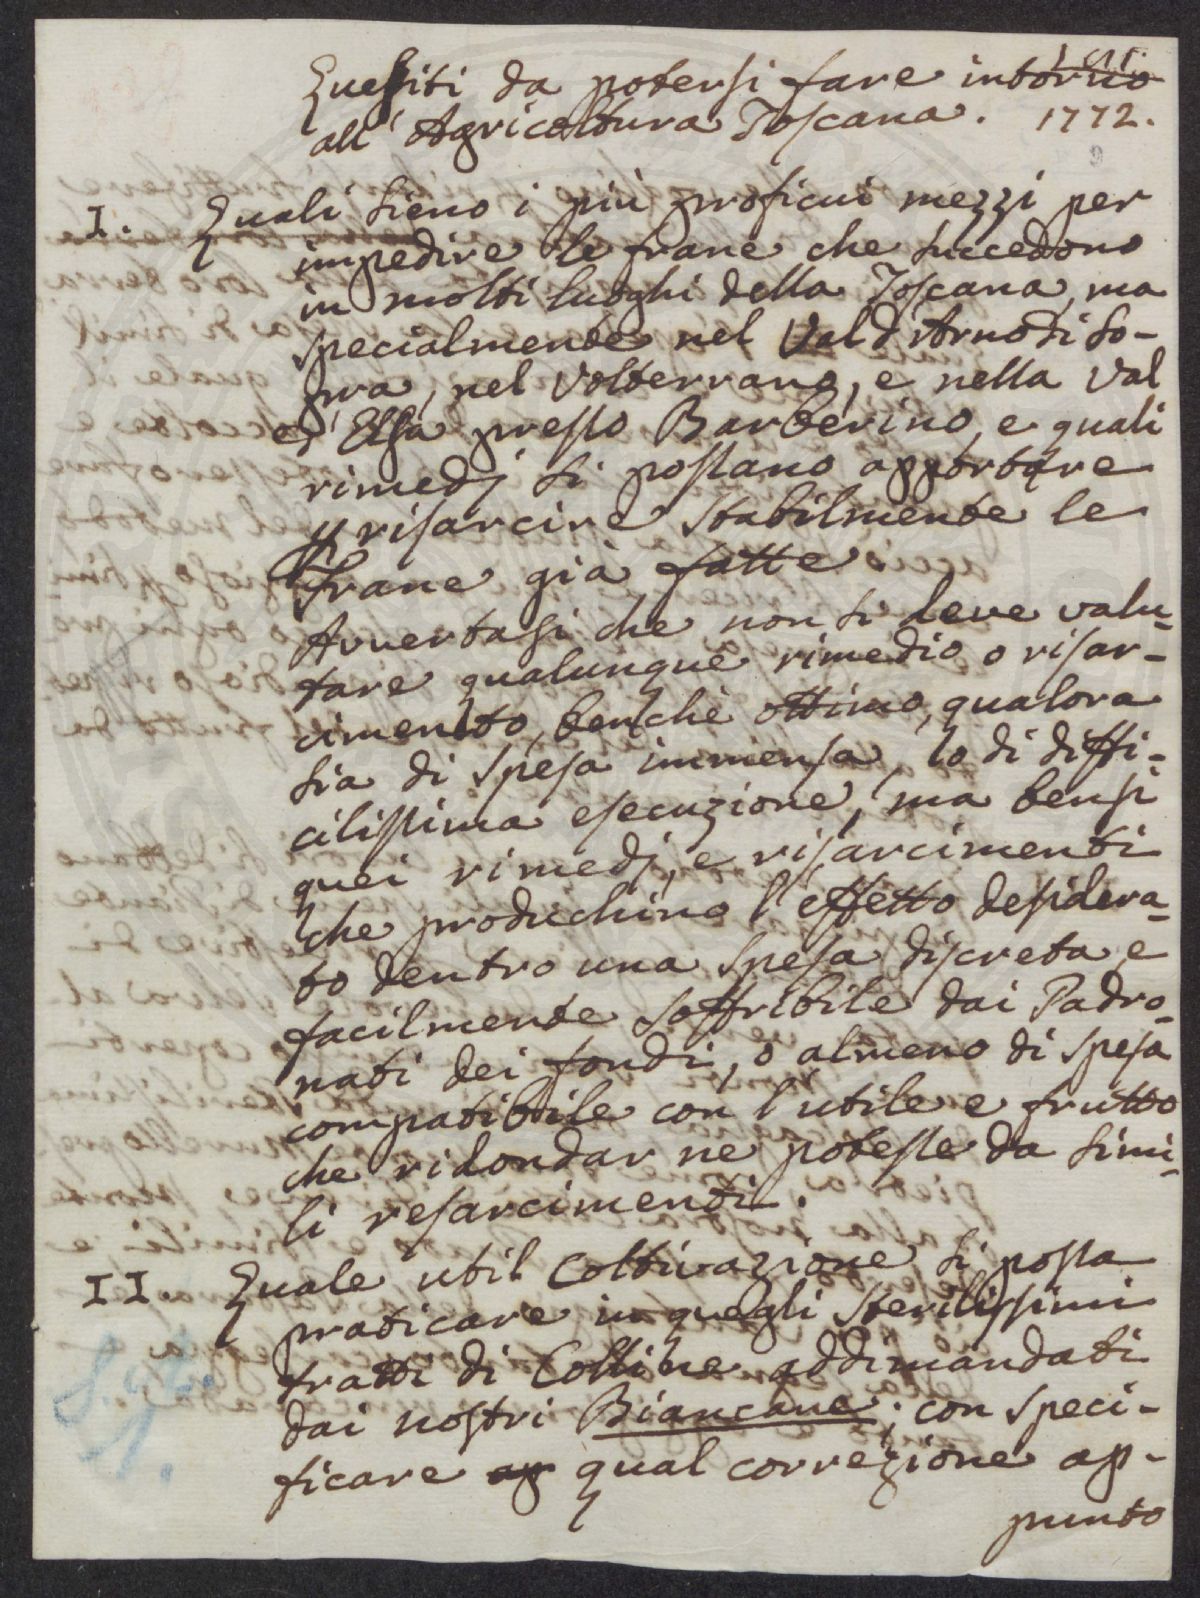 Quesiti da potersi fare intorno
all' Agricoltura Toscana. 1772.
I. Quali sieno i più proficui mezzi per
impedire le frane che succedono
in molti luoghi della Toscana, ma
specialmente nel Val d'Arno di So-
pra, nel Volterrano, e nella Val
d'Elsa presso Barberino, e quali
rimedj si possano apportare
p risarcire stabilmente le
frane già fatte
Avvertasi che non si deve valu-
tare qualunque rimedio o risar-
cimento, benchè ottimo, qualora
sia di spesa immensa, o di diffi-
cilissima esecuzione, ma bensì
quei rimedj, e risarcimenti
che produchino l'effetto desidera-
to dentro una spesa discreta e
facilmente soffribile dai Padro-
nati dei fondi, o almeno di spesa
compatibile con l'utile e frutto
che ridondar ne potesse da simi-
li resarcimenti.
II. Quale util Coltivazione si possa
praticare in quegli sterilissimi
tratti di Colline addimandati
dai nostri Biancane; con speci-
ficare ap qual correzione ap-
punto